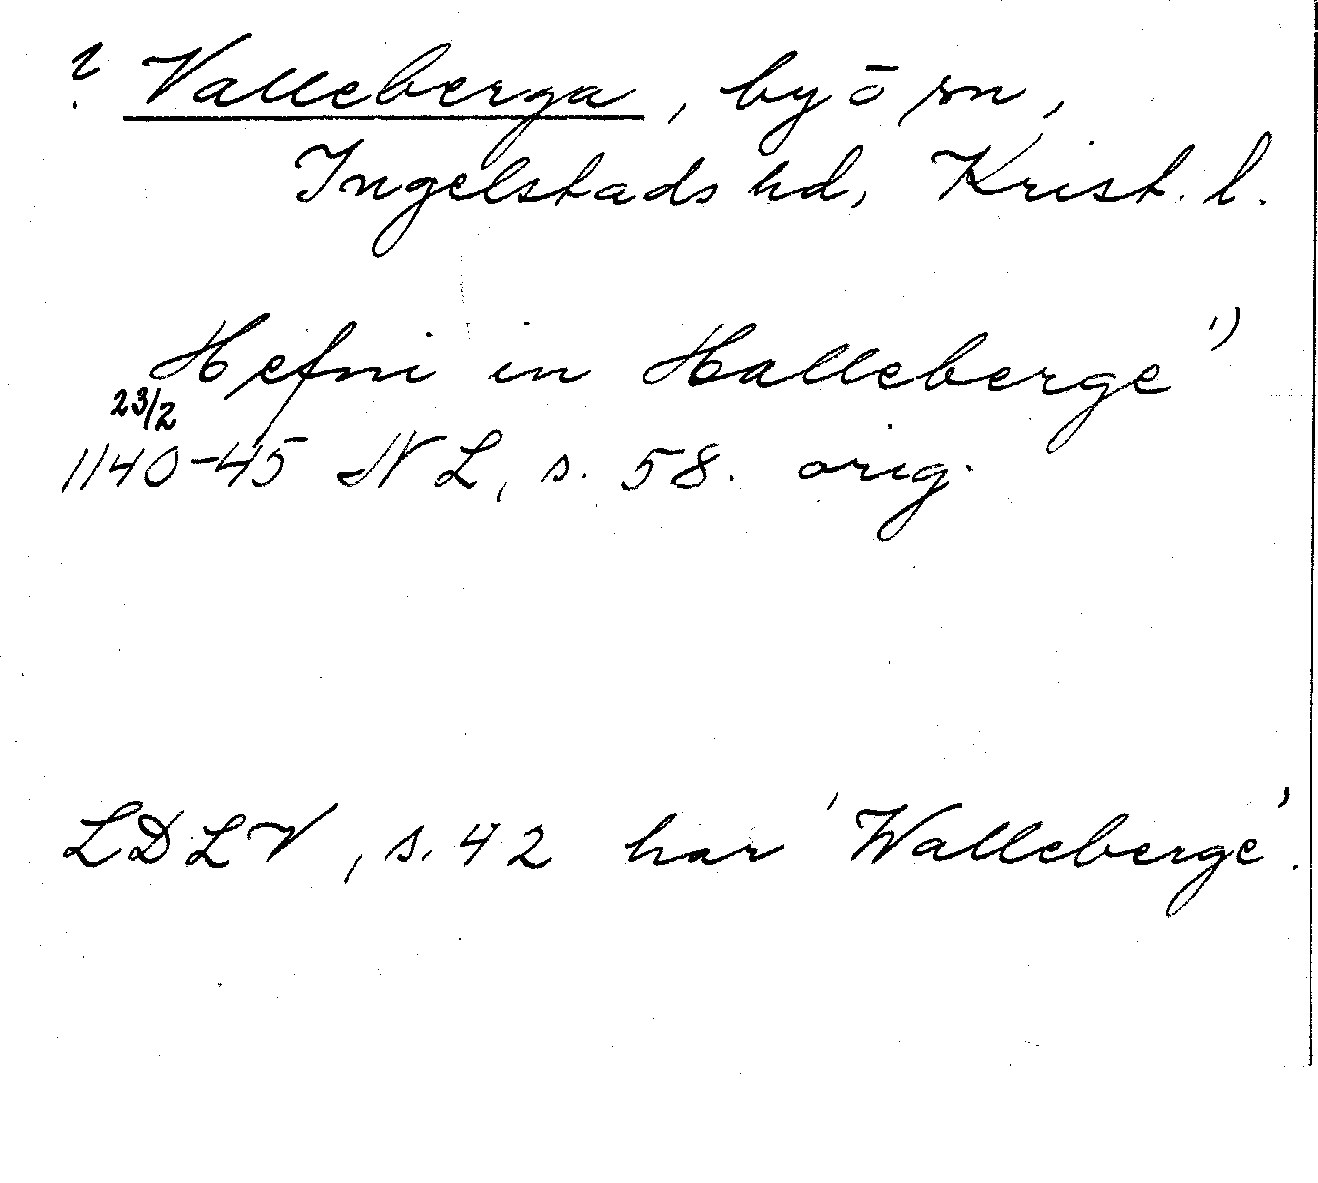 ? Valleberga, by o sn,
Ingelstads hd, Krist. l.
Hefni in Halleberge ¹)
23/2
1140-45 NL, s. 58. orig.
LDLV, s. 42 har 'Walleberge'.